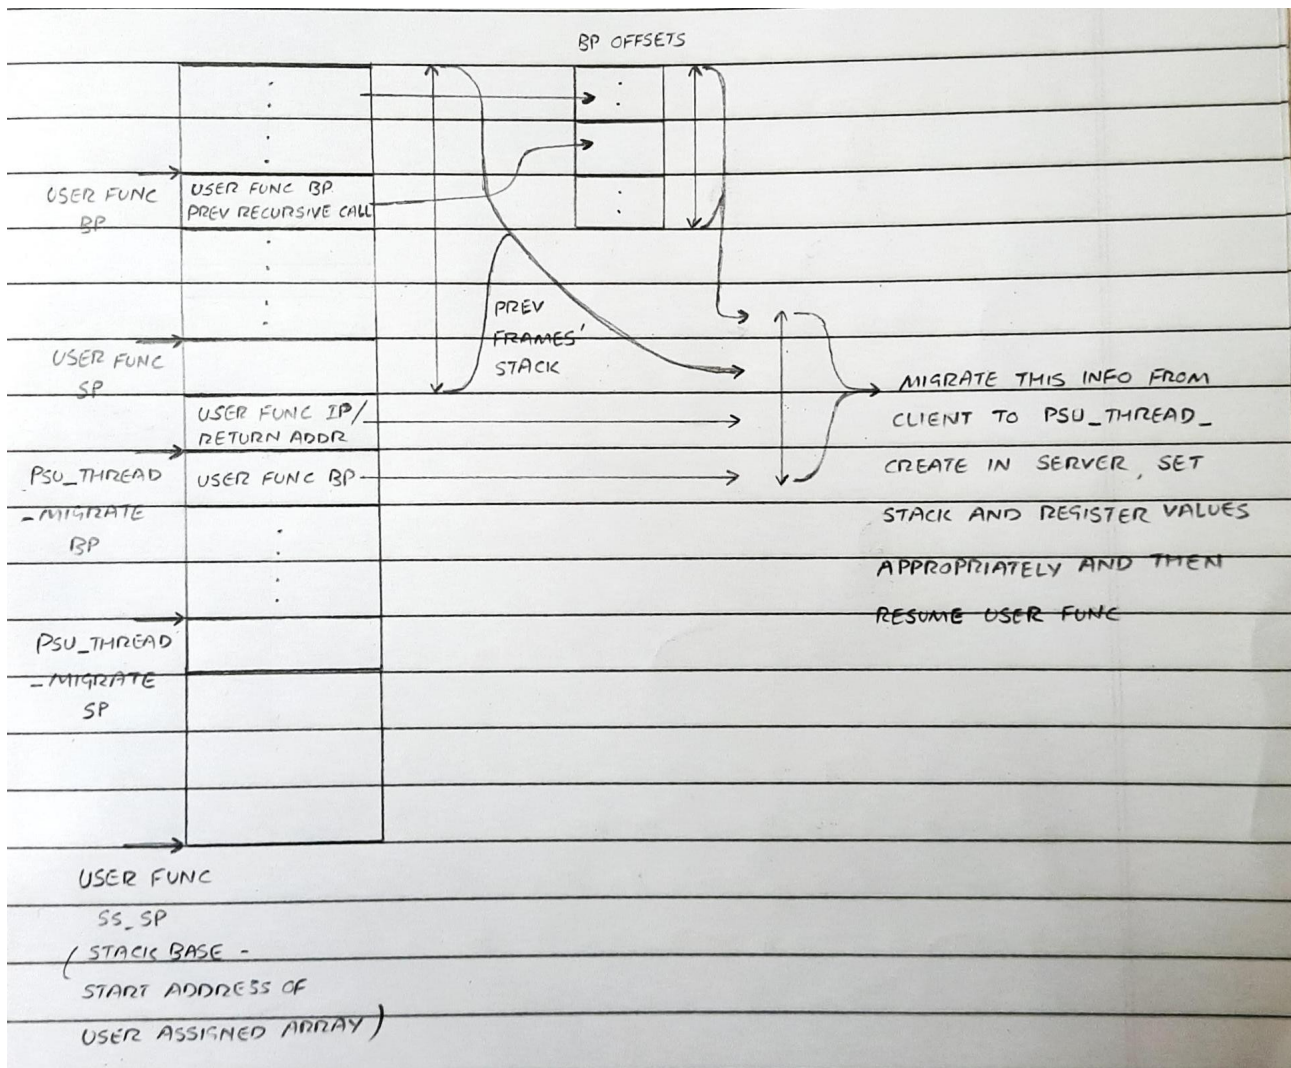 BP OFFSETS
USER FUNC
BP
USER FUNC BP
PREV RECURSIVE CALL
PREV
FRAMES'
STACK
USER FUNC
SP
USER FUNC IP/
RETURN ADDR
PSU_THREAD
_MIGRATE
BP
USER FUNC BP
MIGRATE THIS INFO FROM
CLIENT TO PSU_THREAD_
CREATE IN SERVER, SET
STACK AND REGISTER VALUES
APPROPRIATELY AND THEN
RESUME USER FUNC
PSU_THREAD
_MIGRATE
SP
USER FUNC
SS_SP
(STACK BASE -
START ADDRESS OF
USER ASSIGNED ARRAY)